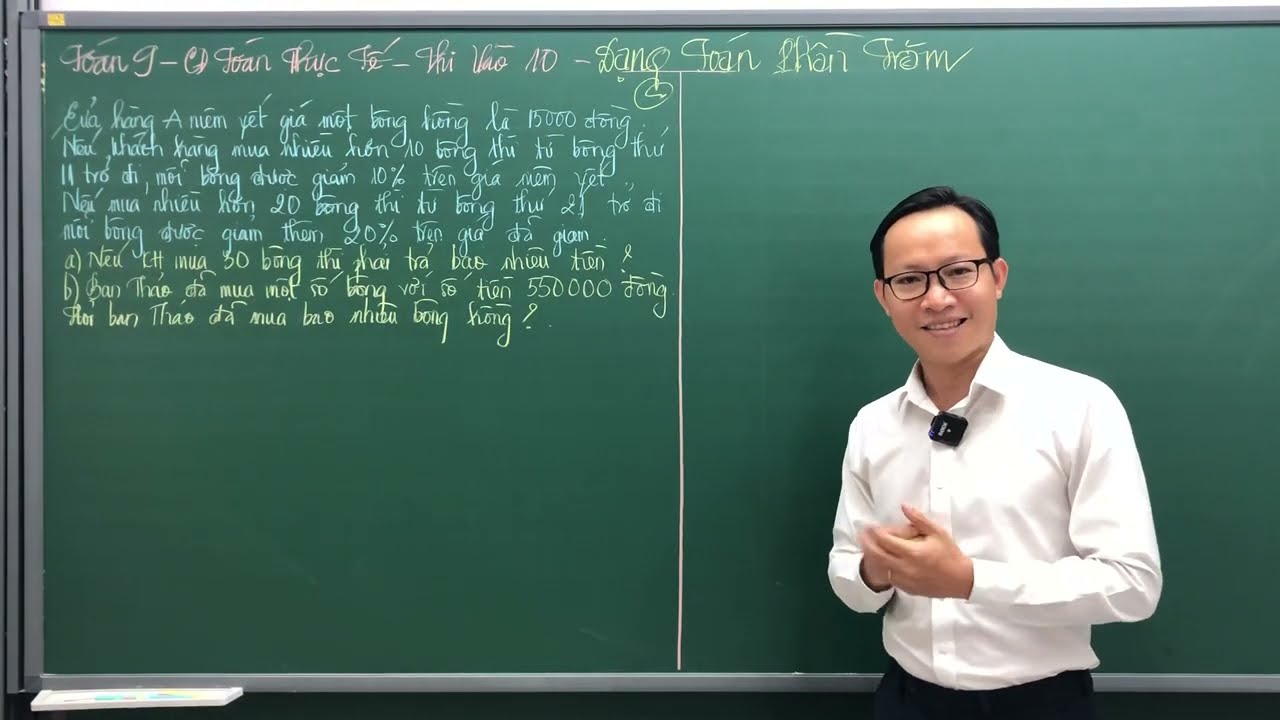 Toán 9 - CĐ Toán Thực Tế - Thi Vào 10 - Dạng Toán Phần Trăm
Cửa hàng A niêm yết giá một bông hồng là 15000 đồng.
Nếu khách hàng mua nhiều hơn 10 bông thì từ bông thứ
11 trở đi, mỗi bông được giảm 10% trên giá niêm yết
Nếu mua nhiều hơn 20 bông thì từ bông thứ 21 trở đi
mỗi bông được giảm thêm 20% trên giá đã giảm.
a) Nếu KH mua 30 bông thì phải trả bao nhiêu tiền ?
b) Bạn Thảo đã mua một số bông với số tiền 550000 đồng.
Hỏi bạn Thảo đã mua bao nhiêu bông hồng ?.